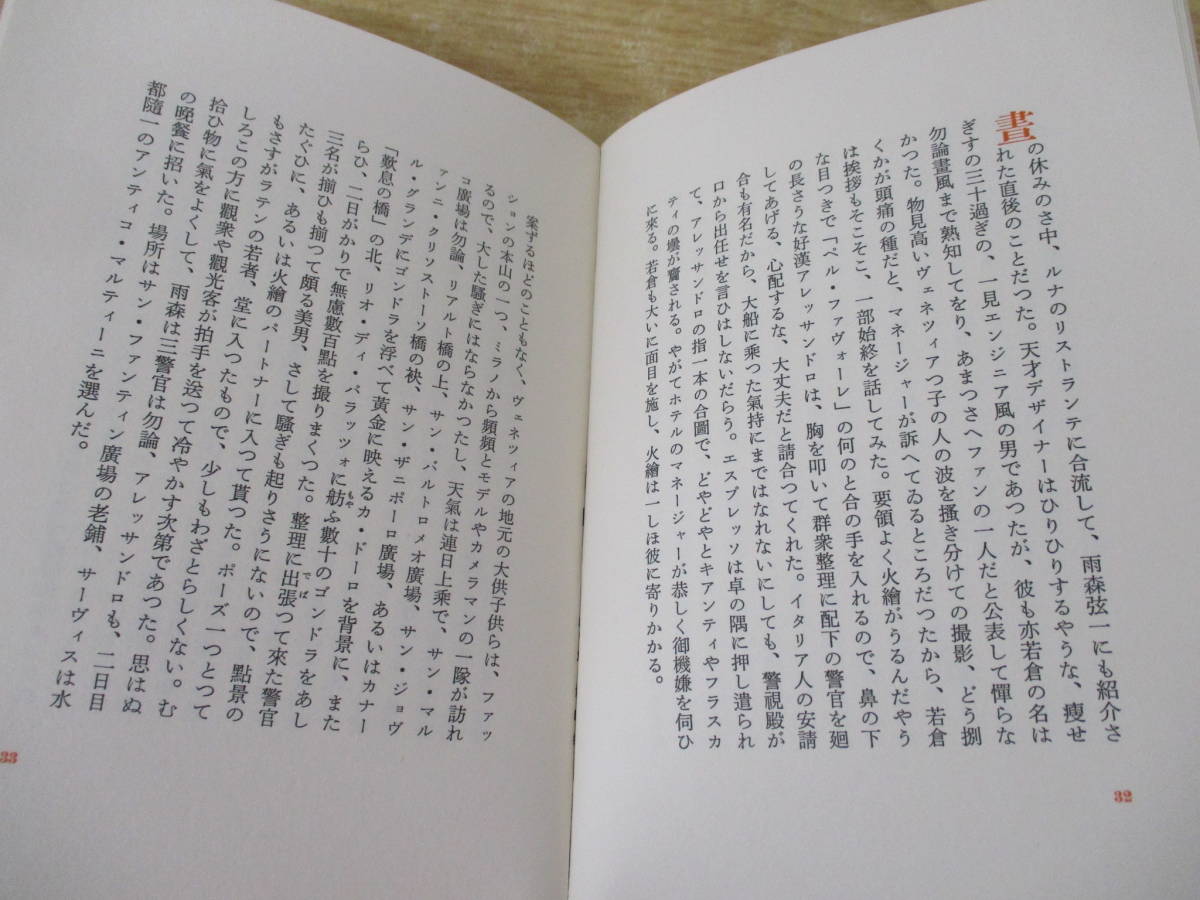 晝の休みのさ中、ルナのリストランテに合流して、雨森弦一にも紹介さ
れた直後のことだつた。天才デザイナーはひりひりするやうな、痩せ
ぎすの三十過ぎの、一見エンジニア風の男であつたが、彼も亦若倉の名は
勿論畫風まで熟知してをり、あまつさへファンの一人だと公表して憚らな
かつた。物見高いヴェネツィアつ子の人の波を掻き分けての撮影、どう捌
くかが頭痛の種だと、マネージャーが訴へてゐるところだつたから、若倉
は挨拶もそこそこ、一部始終を話してみた。要領よく火繪がうるんだやう
な目つきで「ペル・ファヴォーレ」の何のと合の手を入れるので、鼻の下
の長さうな好漢アレッサンドロは、胸を叩いて群衆整理に配下の警官を廻
してあげる、心配するな、大丈夫だと請合つてくれた。イタリア人の安請
合も有名だから、大船に乘つた氣持にまではなれないにしても、警視殿が
口から出任せを言ひはしないだらう。エスプレッソは卓の隅に押し遣られ
て、アレッサンドロの指一本の合圖で、どやどやとキアンティやフラスカ
ティの壜が齎される。やがてホテルのマネージャーが恭しく御機嫌を伺ひ
に來る。若倉も大いに面目を施し、火繪は一しほ彼に寄りかかる。
32
案ずるほどのこともなく、ヴェネツィアの地元の大供子供らは、ファッ
ションの本山の一つ、ミラノから頻頻とモデルやカメラマンの一隊が訪れ
るので、大した騒ぎにはならなかつたし、天氣は連日上乘で、サン・マル
コ廣場は勿論、リアルト橋の上、サン・バルトロメオ廣場、サン・ジョヴ
ァンニ・クリソストーソ橋の袂、サン・ザニポーロ廣場、あるいはカナー
ル・グランデにゴンドラを浮べて黄金に映えるカ・ドーロを背景に、また
「歎息の橋」の北、リオ・ディ・パラッツォに舫ふ數十のゴンドラをあし
らひ、二日がかりで無慮數百點を撮りまくつた。整理に出張つて來た警官
三名が揃ひも揃つて頗る美男、さして騒ぎも起りさうにないので、點景の
たぐひに、あるいは火繪のパートナーに入つて貰つた。ポーズ一つとつて
もさすがラテンの若者、堂に入つたもので、少しもわざとらしくない。む
しろこの方に觀衆や觀光客が拍手を送つて冷やかす次第であつた。思はぬ
拾ひ物に氣をよくして、雨森は三警官は勿論、アレッサンドロも、二日目
の晩餐に招いた。場所はサン・ファンティン廣場の老鋪、サーヴィスは水
都隨一のアンティコ・マルティーニを選んだ。
33